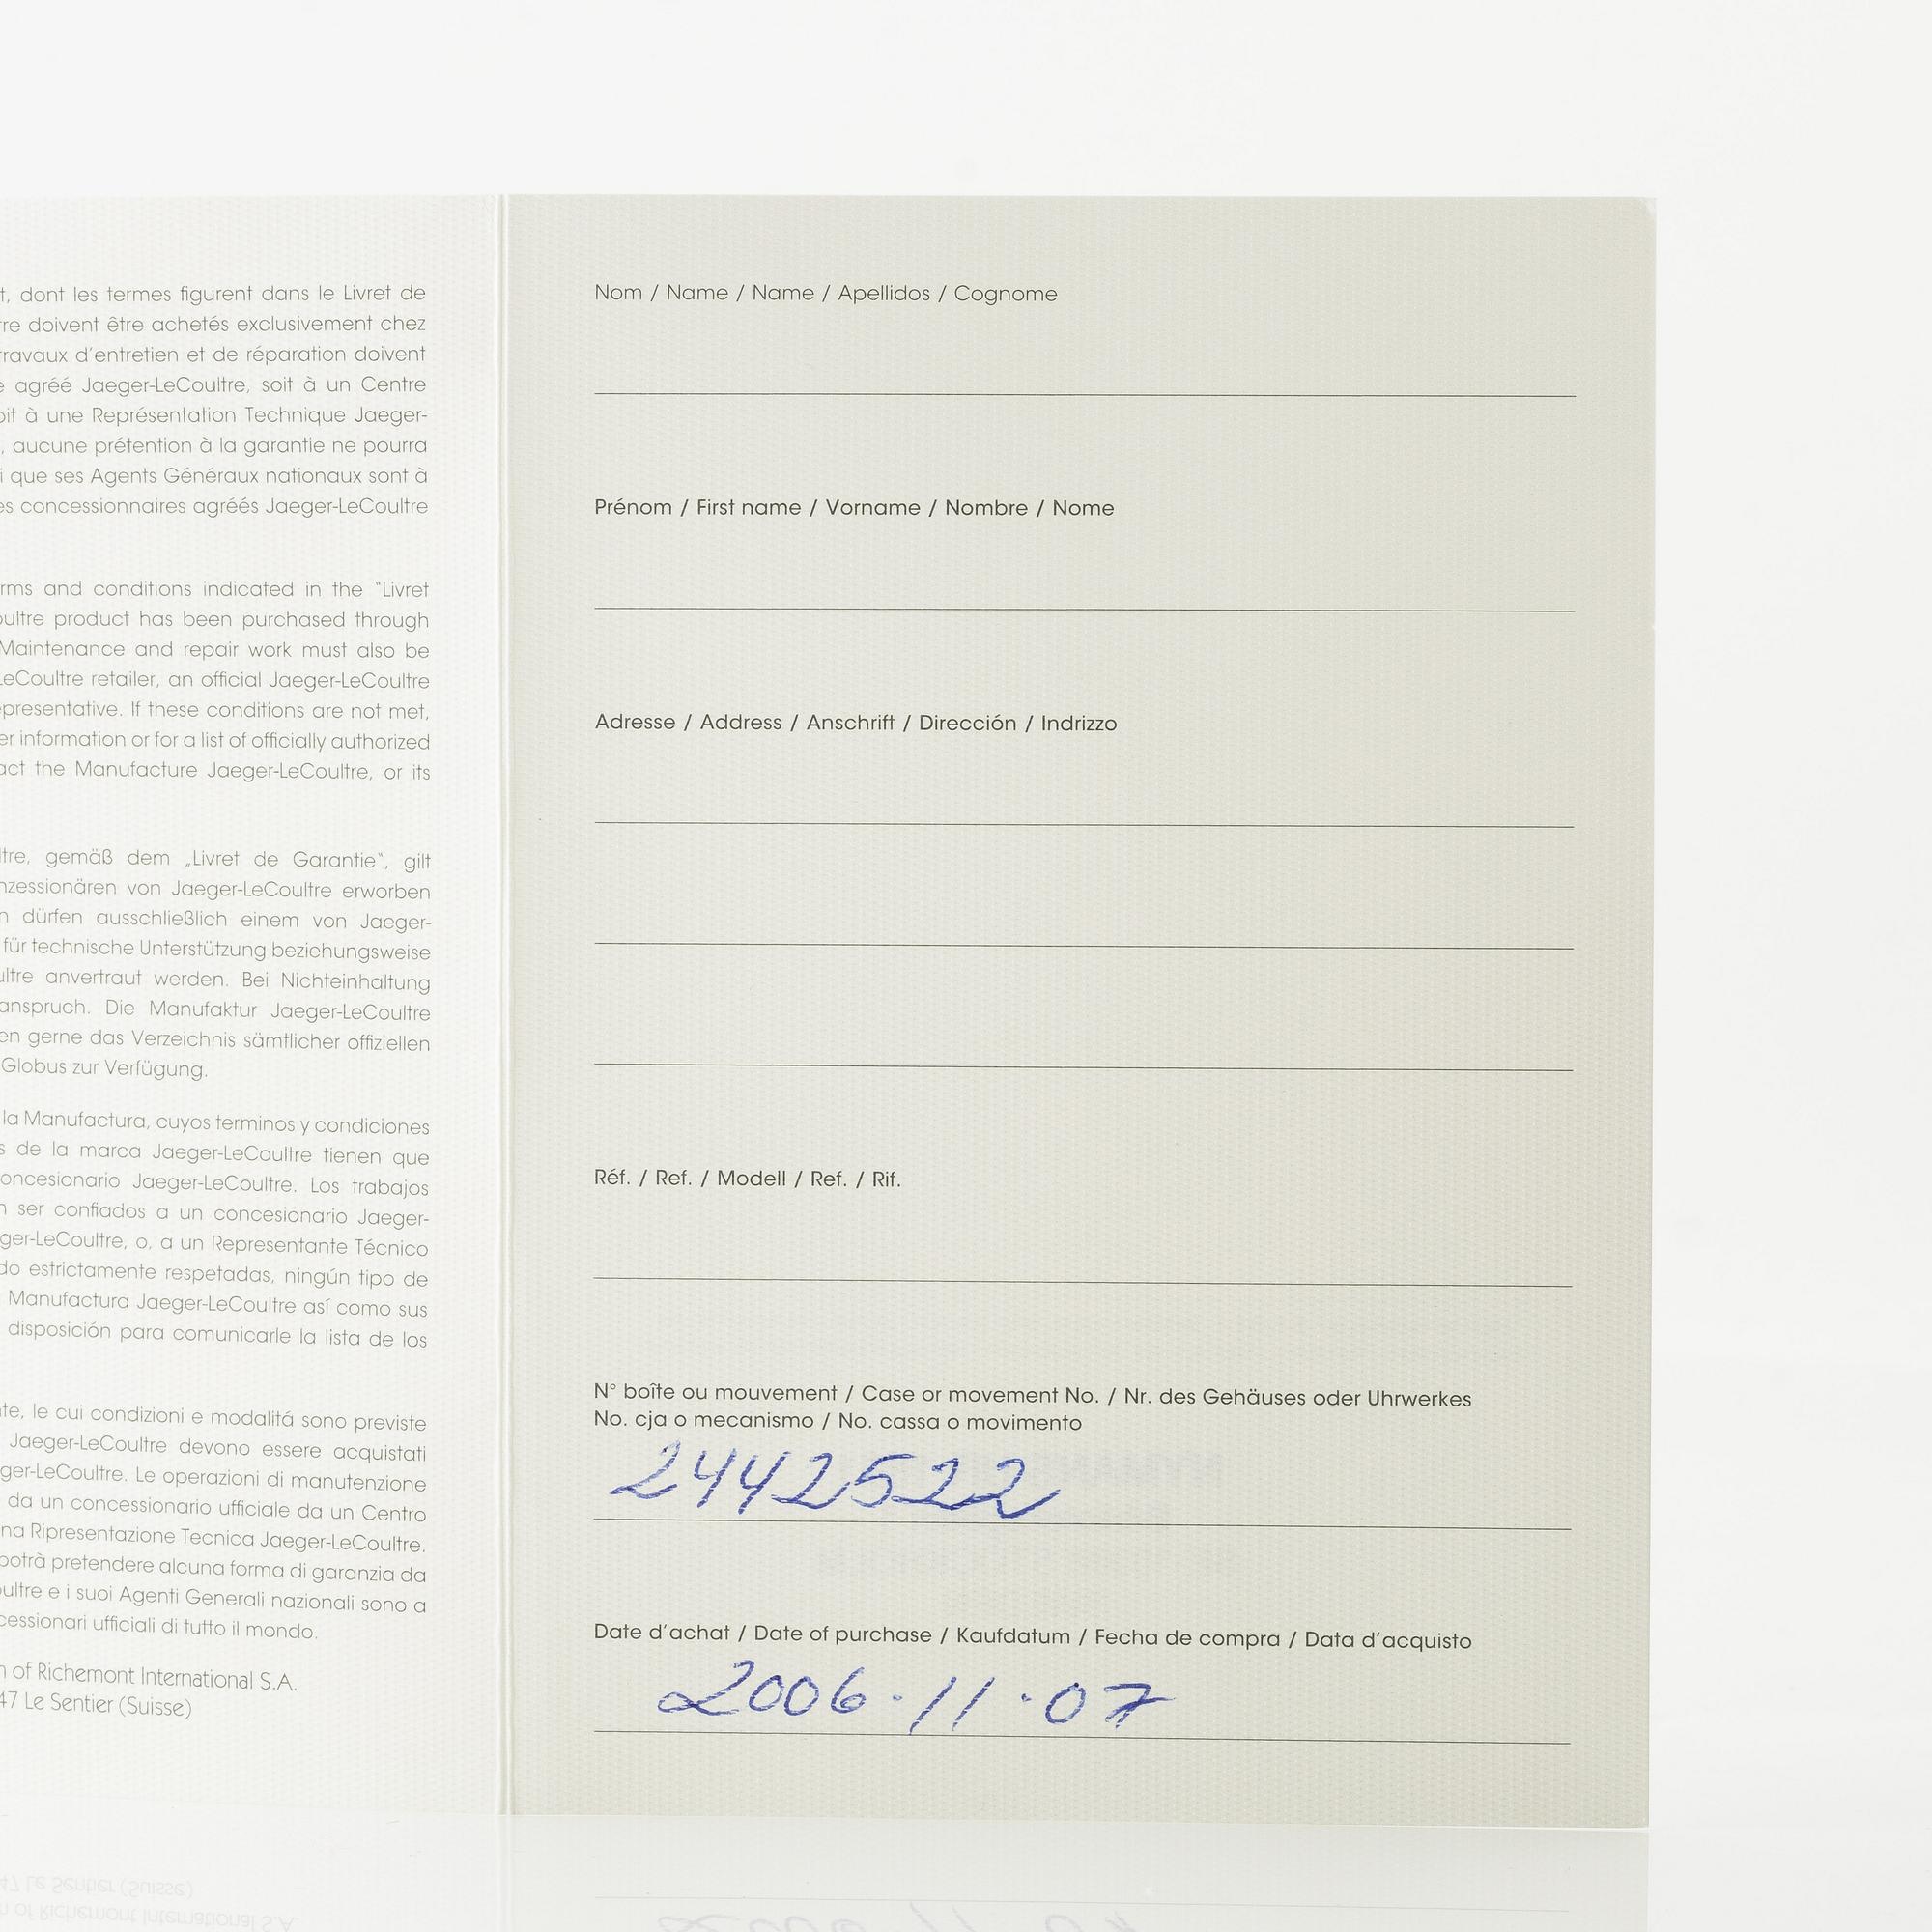 t, dont les termes figurent dans le Livret de
re doivent être achetés exclusivement chez
travaux d'entretien et de réparation doivent
agréé Jaeger-LeCoultre, soit à un Centre
oit à une Représentation Technique Jaeger-
, aucune prétention à la garantie ne pourra
i que ses Agents Généraux nationaux sont à
es concessionnaires agréés Jaeger-LeCoultre
rms and conditions indicated in the "Livret
oultre product has been purchased through
Maintenance and repair work must also be
LeCoultre retailer, an official Jaeger-LeCoultre
epresentative. If these conditions are not met,
er information or for a list of officially authorized
act the Manufacture Jaeger-LeCoultre, or its
ltre, gemäß dem „Livret de Garantie", gilt
nzessionären von Jaeger-LeCoultre erworben
n dürfen ausschließlich einem von Jaeger-
für technische Unterstützung beziehungsweise
ultre anvertraut werden. Bei Nichteinhaltung
anspruch. Die Manufaktur Jaeger-LeCoultre
en gerne das Verzeichnis sämtlicher offiziellen
Globus zur Verfügung.
la Manufactura, cuyos terminos y condiciones
s de la marca Jaeger-LeCoultre tienen que
oncesionario Jaeger-LeCoultre. Los trabajos
n ser confiados a un concesionario Jaeger-
ger-LeCoultre, o, a un Representante Técnico
do estrictamente respetadas, ningún tipo de
Manufactura Jaeger-LeCoultre así como sus
disposición para comunicarle la lista de los
nte, le cui condizioni e modalitá sono previste
Jaeger-LeCoultre devono essere acquistati
ger-LeCoultre. Le operazioni di manutenzione
da un concessionario ufficiale da un Centro
na Ripresentazione Tecnica Jaeger-LeCoultre.
potrà pretendere alcuna forma di garanzia da
oultre e i suoi Agenti Generali nazionali sono a
cessionari ufficiali di tutto il mondo.
n of Richemont International S.A.
47 Le Sentier (Suisse)
Nom / Name / Name / Apellidos / Cognome
Prénom / First name / Vorname / Nombre / Nome
Adresse / Address / Anschrift / Dirección / Indrizzo
Réf. / Ref. / Modell / Ref. / Rif.
N° boîte ou mouvement / Case or movement No. / Nr. des Gehäuses oder Uhrwerkes
No. cja o mecanismo / No. cassa o movimento
2442522
Date d'achat / Date of purchase / Kaufdatum / Fecha de compra / Data d'acquisto
2006·11·07